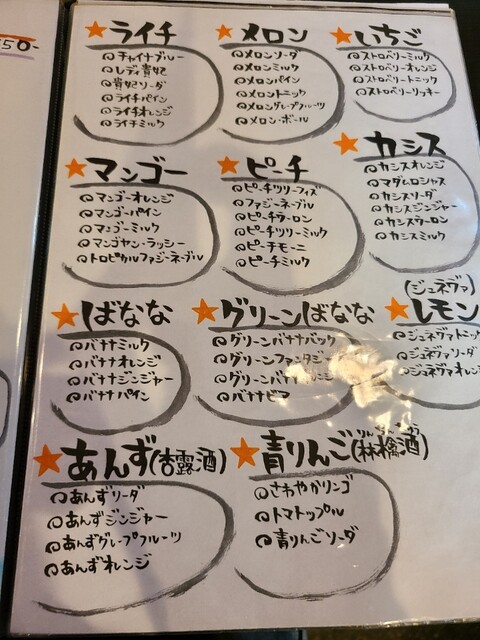 50-
★ライチ
チャイナブルー
レディ貴妃
貴妃ソーダ
ライチパイン
ライチオレンジ
ライチミルク
★メロン
メロンソーダ
メロンミルク
メロンパイン
メロントニック
メロングレープフルーツ
メロン・ボール
★いちご
ストロベリーミルク
ストロベリーオレンジ
ストロベリートニック
ストロベリーリッキー
★マンゴー
マンゴーオレンジ
マンゴーパイン
マンゴーミルク
マンゴヤン・ラッシー
トロピカルファジーネーブル
★ピーチ
ピーチツリーフィズ
ファジーネーブル
ピーチウーロン
ピーチツリーミルク
ピーチモーニ
ピーチミルク
★カシス
カシスオレンジ
マダムロシャス
カシスソーダ
カシスジンジャー
カシスウーロン
カシスミルク
★ばなな
バナナミルク
バナナオレンジ
バナナジンジャー
バナナパイン
★グリーンばなな
グリーンバナナバック
グリーンファンタジー
グリーンバナナ
バナナビア
(ジュネヴァ)
★レモン
ジュネヴァトニック
ジュネヴァソーダ
ジュネヴァオレン
★あんず(杏露酒)
あんずソーダ
あんずジンジャー
あんずグレープフルーツ
あんずオレンジ
★青りんご(林檎酒)
さわやかリンゴ
トマトップル
青りんごソーダ